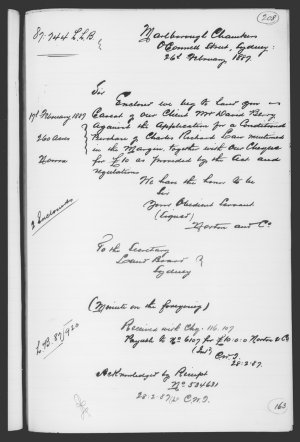 (208)
87.744 L.L.B
Marlborough Chambers
O'Connell Street, Sydney.
26th February 1887.
Sir
Enclosed we beg to hand you on
17th February 1887
260 acres
Nowra
Caveat of our Client Mr David Berry
Against the Application for a Conditional
Purchase of Charles Richard Law mentioned
in the Margin, together with our Cheque
for £10 as provided by the Act and
regulations
We have the honor to be
Sir
Your Obedient Servant
(Signed)
Norton and Co
2 Enclosures
To the Secretary
Land Board
Sydney
L.B. 87/920
(Minute on the foregoing)
Received with Chq. 116.107
Payable to No 6107 for £10.0.0 Norton & Co
28.2.87.
Acknowledged by Receipt
No 534631
28.2.87
163